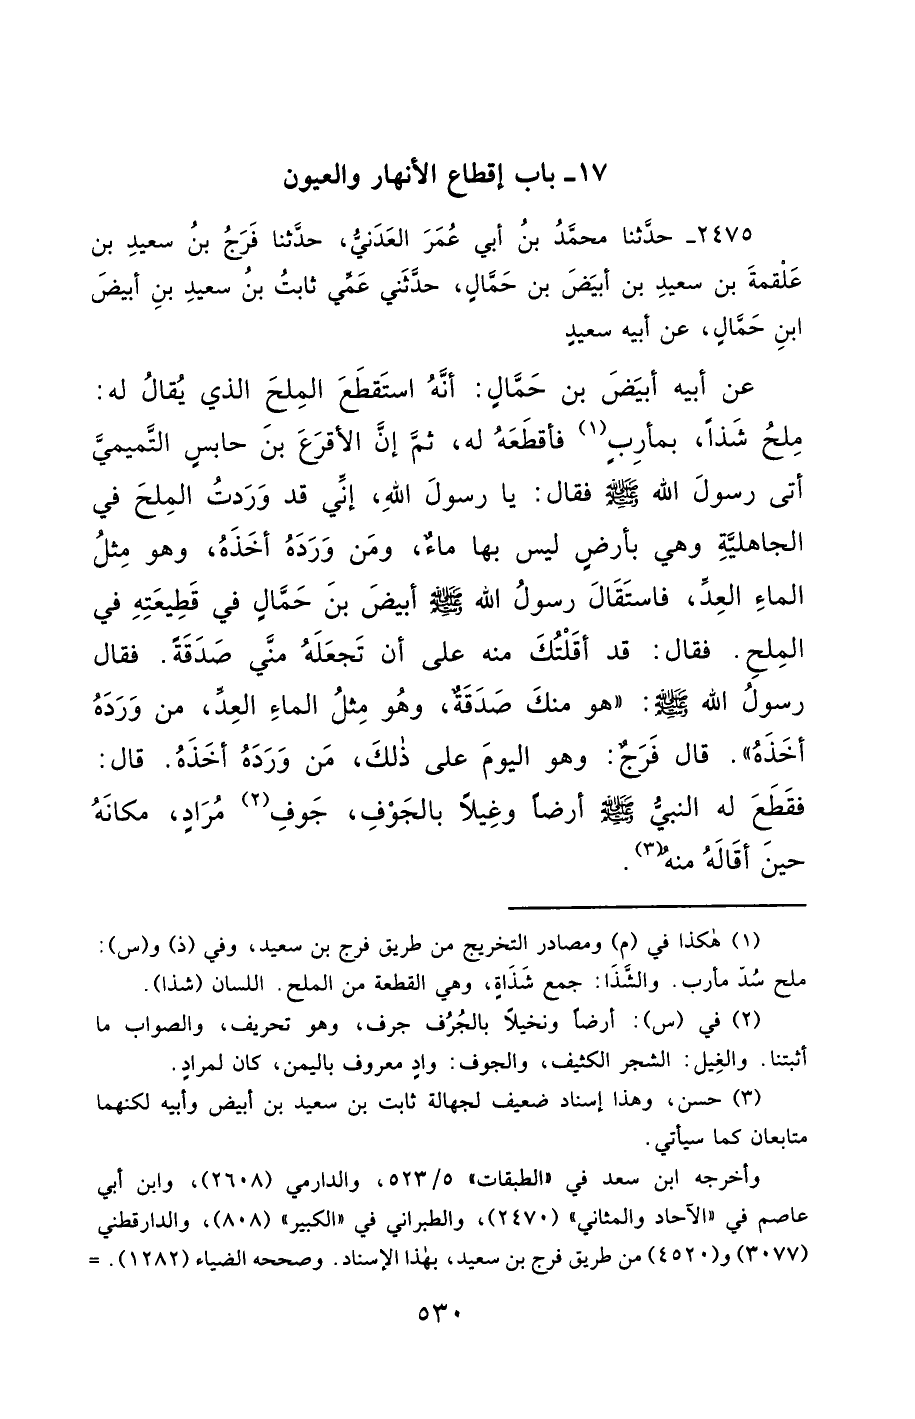 ١٧ـ باب إقطاع الأنهار والعيون
٢٤٧٥ـ حدَّثنا محمَّدُ بنُ أبي عُمَرَ العَدَنيُّ، حدَّثنا فَرَجُ بنُ سعيدِ بن
عَلْقمةَ بن سعيدِ بن أبيَضَ بن حَمَّالٍ، حدَّثَني عَمِّي ثابتُ بنُ سعيدِ بنِ أبيضَ
ابنِ حَمَّالٍ، عن أبيه سعيدٍ
عن أبيه أبيَضَ بن حَمَّالٍ: أنَّهُ استَقطَعَ المِلحَ الذي يُقالُ له:
مِلحُ شَذاً، بمأرِبٍ(١) فأقطَعَهُ له، ثمَّ إنَّ الأقرَعَ بنَ حابسٍ التَّميميَّ
أتى رسولَ الله ﷺ فقال: يا رسولَ اللهِ، إنِّي قد وَرَدتُ المِلحَ في
الجاهليَّةِ وهي بأرضٍ ليس بها ماءٌ، ومَن وَرَدَهُ أخَذَهُ، وهو مِثلُ
الماءِ العِدِّ، فاستَقَالَ رسولُ الله ﷺ أبيضَ بنَ حَمَّالٍ في قَطِيعَتِهِ في
المِلحِ. فقال: قد أقَلْتُكَ منه على أن تَجعَلَهُ منَّي صَدَقَةً. فقال
رسولُ الله ﷺ: «هو منكَ صَدَقَةٌ، وهُو مِثلُ الماءِ العِدِّ، من وَرَدَهُ
أخَذَهُ». قال فَرَجٌ: وهو اليومَ على ذٰلكَ، مَن وَرَدَهُ أخَذَهُ. قال:
فقَطَعَ له النبيُّ ﷺ أرضاً وغِيلاً بالجَوْفِ، جَوفِ(٢) مُرَادٍ، مكانَهُ
حينَ أقَالَهُ منهُ(٣).
(١) هٰكذا في (م) ومصادر التخريج من طريق فرج بن سعيد، وفي (ذ) و(س):
ملح سُدّ مأرب. والشَّذَا: جمع شَذَاةٍ، وهي القطعة من الملح. اللسان (شذا).
(٢) في (س): أرضاً ونخيلاً بالجُرُف جرف، وهو تحريف، والصواب ما
أثبتنا. والغِيل: الشجر الكثيف، والجوف: وادٍ معروف باليمن، كان لمرادٍ.
(٣) حسن، وهذا إسناد ضعيف لجهالة ثابت بن سعيد بن أبيض وأبيه لكنهما
متابعان كما سيأتي.
وأخرجه ابن سعد في «الطبقات» ٥/ ٥٢٣، والدارمي (٢٦٠٨)، وابن أبي
عاصم في «الآحاد والمثاني» (٢٤٧٠)، والطبراني في «الكبير» (٨٠٨)، والدارقطني
(٣٠٧٧) و(٤٥٢٠) من طريق فرج بن سعيد، بهٰذا الإسناد. وصححه الضياء (١٢٨٢). =
٥٣٠